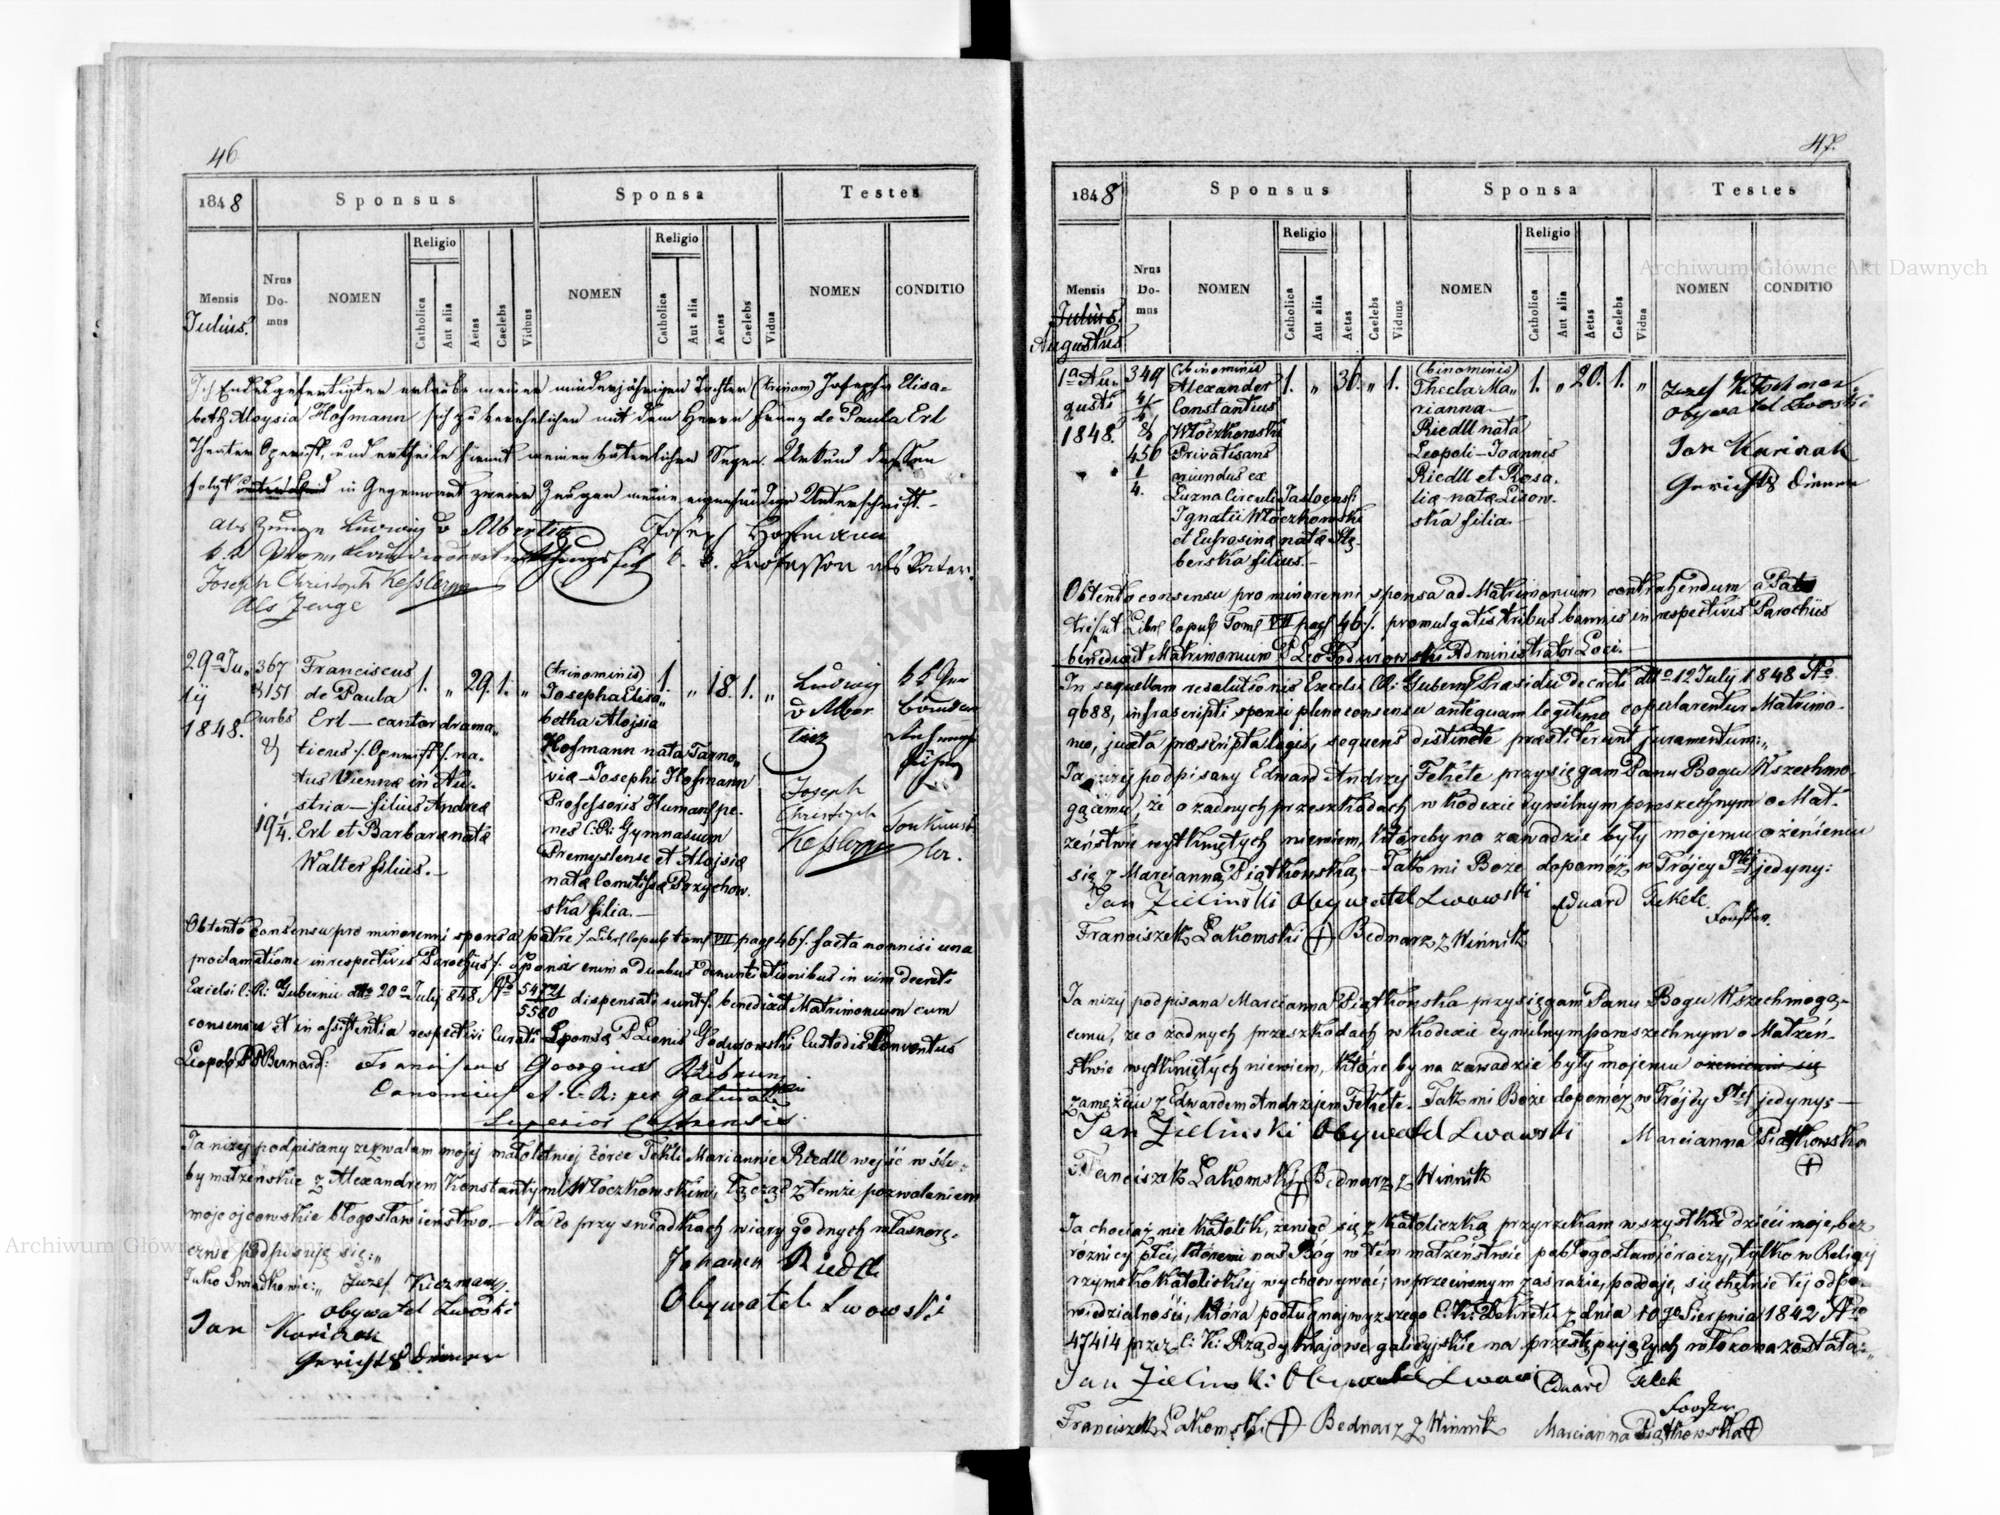 46
1848
Sponsus
Sponsa
Testes
Mensis
Julius.
Nrus Domus
NOMEN
Religio
Catholica
Aut alia
Aetas
Caelebs
Viduus
NOMEN
Religio
Catholica
Aut alia
Aetas
Caelebs
Vidua
NOMEN
CONDITIO
Ich Endesgefertigter erlaube meiner minderjährigen Tochter (trinom) Josepha Elisa-
beth Aloysia Hofmann sich zu verehelichen mit dem Herrn Franz de Paula Erl
Theater Operist, und ertheile hiemit meinen väterlichen Segen. Urkund dessen
folgt in Gegenwart zweier Zeugen meine eigenhändige Unterschrift.-
als Zeuge Ludwig v Alber
Joseph Hofmann
k. k. Professor als Vater.
Joseph Christoph Kessler
als Zeuge
29a Ju„
lij
1848.
367
&151
Ourbs
&
19 1/4
Franciscus
de Paula
Erl – cantor drama„
ticus /. Operist ./ na„
tus Viennæ in Au„
stria – filius Andreæ
Erl et Barbaræ natæ
Walter filius.–
1. „ 29. 1. „
(trinominis)
Josepha Elisa„
betha Alojsia
Hofmann nata Tarno„
viæ – Josephi Hofmann
Professoris Human. pe„
nes C: R: Gymnasium
Premyslense et Alojsiæ
natæ Comitissæ Przychow„
ska filia.–
1 „ 18. 1. „
Ludwig
v Alber
Joseph
Christoph
Kessler
Tonkünst
ler.
Obtento consensu pro minorenni sponsa patre /. Libr. Copul. tom. VII pag. 46 ./ facta nonnisi una
proclamatione in respectivis Parochiis /. Sponsi enim a duabus denuntiationibus in vim decreti
Excelsi C: R: Gubernii dtto 20a July 848 Nro 54721/5580 dispensati sunt ./ benedixit Matrimonium cum
consensu et in assistentia respectivi Curati Sponsæ P. Leonis Fedurowski Custodis Conventus
Leopol PP Bernard: Franciscus Georgius
Canonicus et C: R: per
Superior Castrensis
Ja niżej podpisany zezwalam mojéj małoletniej córce Tekli Mariannie Riedll wejść w ślu„
by małżeńskie z Alexandrem Konstantym Włoczkowskim, łącząc z temże pozwoleniem
moje ojcowskie błogosławieństwo.– Na to przy swiadkach wiary godnych własnorę„
cznie podpisuję się:„
Jako Swiadkowie:„ Juzef Kiczman
obywatel Lwoski
Jan Kariczak
Gerichts diener
Johann Riedll
Obywatel Lwowski
47.
1848
Sponsus
Sponsa
Testes
Mensis
Julius.
Augustus
Nrus Domus
NOMEN
Religio
Catholica
Aut alia
Aetas
Caelebs
Viduus
NOMEN
Religio
Catholica
Aut alia
Aetas
Caelebs
Vidua
NOMEN
CONDITIO
1a Au„
gusti
1848.
349
4/4
&
456
1/4.
(binominis)
Alexander
Constantius
Włoczkowski
Privatisans
oriundus ex
Luzna Circuli Jasloensi
Ignatii Włoczkowski
et Eufrosinæ natæ Stę„
berska filius.–
1. „ 36. „ 1.
(binominis)
Thecla Ma„
rianna
Riedll nata
Leopoli – Joannis
Riedll et Rosa„
liæ natæ Lisow„
ska filia.–
1. „ 20. 1. „
Juzef Kiczman
obywatel Lwoski
Jan Kariczak
Gerichts diener
Obtento consensu pro minorenni sponsa ad Matrimonium contrahendum a Pa
tre /. ut Libr. Copul. Tom. VII pag. 46 ./. promulgatis tribus bannis in respectivis Parochiis
benedixit Matrimonium P. Leo Fedurowski Administrator Loci.–
In sequellam resolutionis Excelsi C: R: Gubern. Præsidii decreti dtto 12 July 1848 No
9688, infrascripti sponsi pleno consensu antequam legitimo copularentur Matrimo„
nio, juxta præscripta legis, sequens distincte præstiterunt juramentum:„
Ja niżej podpisany Edward Andrzy Fekete przysięgam Panu Bogu Wszechmo„
gącemu, że o żadnych przeszkodach w kodexie cywilnym powszechnym o Mał„
żeństwie wytkniętych niewiem, któreby na zawadzie były mojemu ożenieniu
się z Marcianną Piątkowską.– Tak mi Boże dopomóż w Trójcy Stéj jedyny:
Jan Zielinski Obywatel Lwowski
Eduard Fekete
Forster.
Franciszek Łakomski (+) Bednarz z Winnik
Ja niży podpisana Marcianna Piątkowska przysięgam Panu Bogu Wszechmogą„
cemu, że o żadnych przeszkodach w kodexie cywilnym powszechnym o Małżeń„
stwie wytkniętych niewiem, które by na zawadzie były mojemu ożenieniu się
zamęźciu z Edwardem Andrzejem Fekete. Tak mi Boże dopomóż w Trójcy Stéj jedyny –
Jan Zielinski Obywatel Lwowski
Marcianna Piątkowska
(+)
Franciszek Łakomski + Bednarz z Winnik
Ja chociaż nie Katolik, żeniąc się z Katoliczką przyrzekam wszystkie dzieci moje, bez
róznicy płci, któremi nas Bóg w tém małżeństwie pobłogosławić raczy, tylko w Religij
rzymsko Katolickiéj wychowywać; w przeciwnym zaś razie, poddaję się chętnie téj odpo„
wiedzialności, która podług najwyższego C: K: Dekretu z dnia 10go Sierpnia 1842 Nro
47414 przez C: K: Rządy krajowe galicyjskie na przestępujących włożona została:„
Jan Zielinski Obywatel Lwowski
Eduard Fekete
Forster
Franciszek Łakomski (+) Bednarz z Winnik
Marcianna Piątkowska (+)
Archiwum Główne Akt Dawnych
Archiwum Główne Akt Dawnych